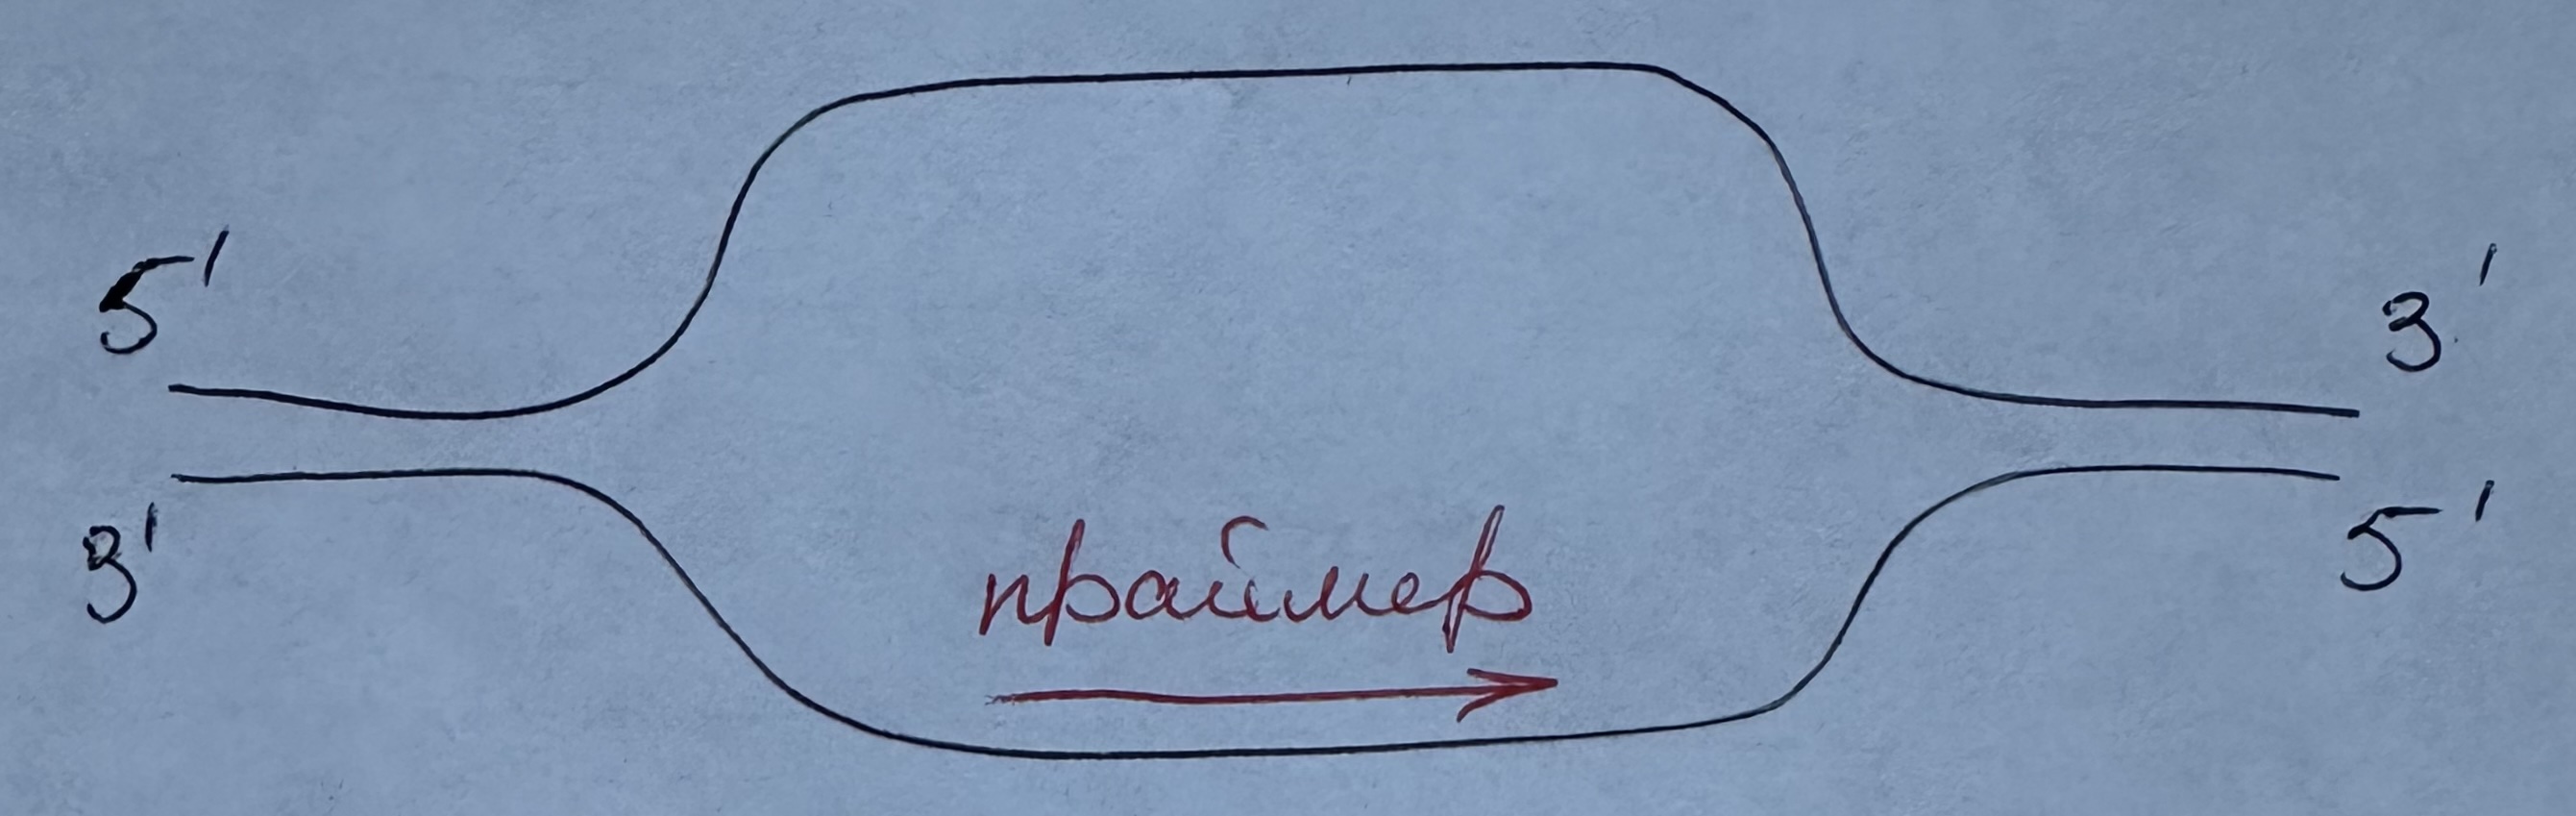 5'
3'
3'
праймер
5'